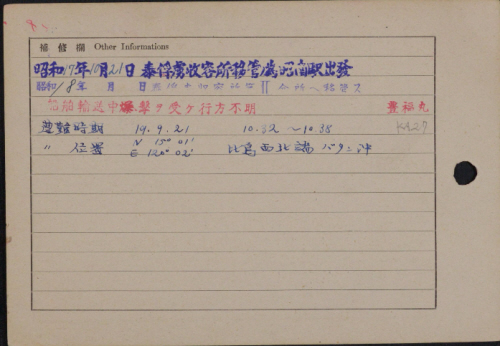 補修欄 Other Informations
昭和17年10月21日 泰俘虜收容所移管ノ為昭南駅出發
昭和18年 月 日
船舶輸送中爆撃ヲ受ケ行方不明 豊福丸
遭難時期 19.9.21 10.32 ~10.38 K427
〃 位置 N 15° 01' E 120° 02' 比島西北端 バタン沖